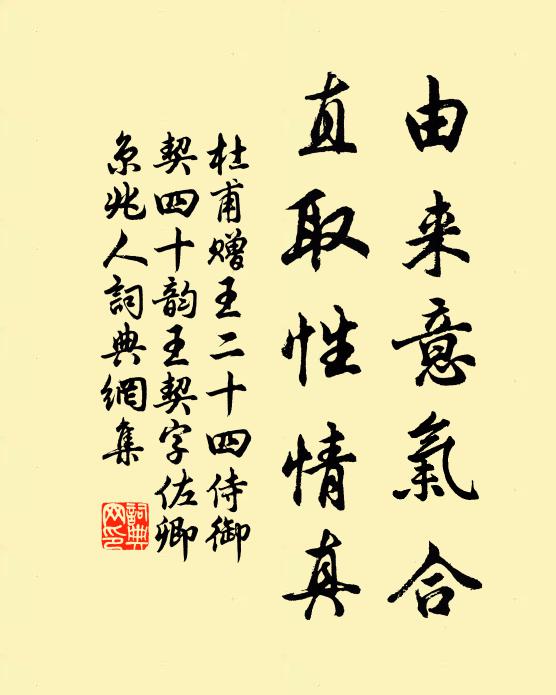 由来意氣合
直取性情真
杜甫赠王二十四侍御
契四十韵王契字佐卿
京兆人詞典網集
詞典
网印